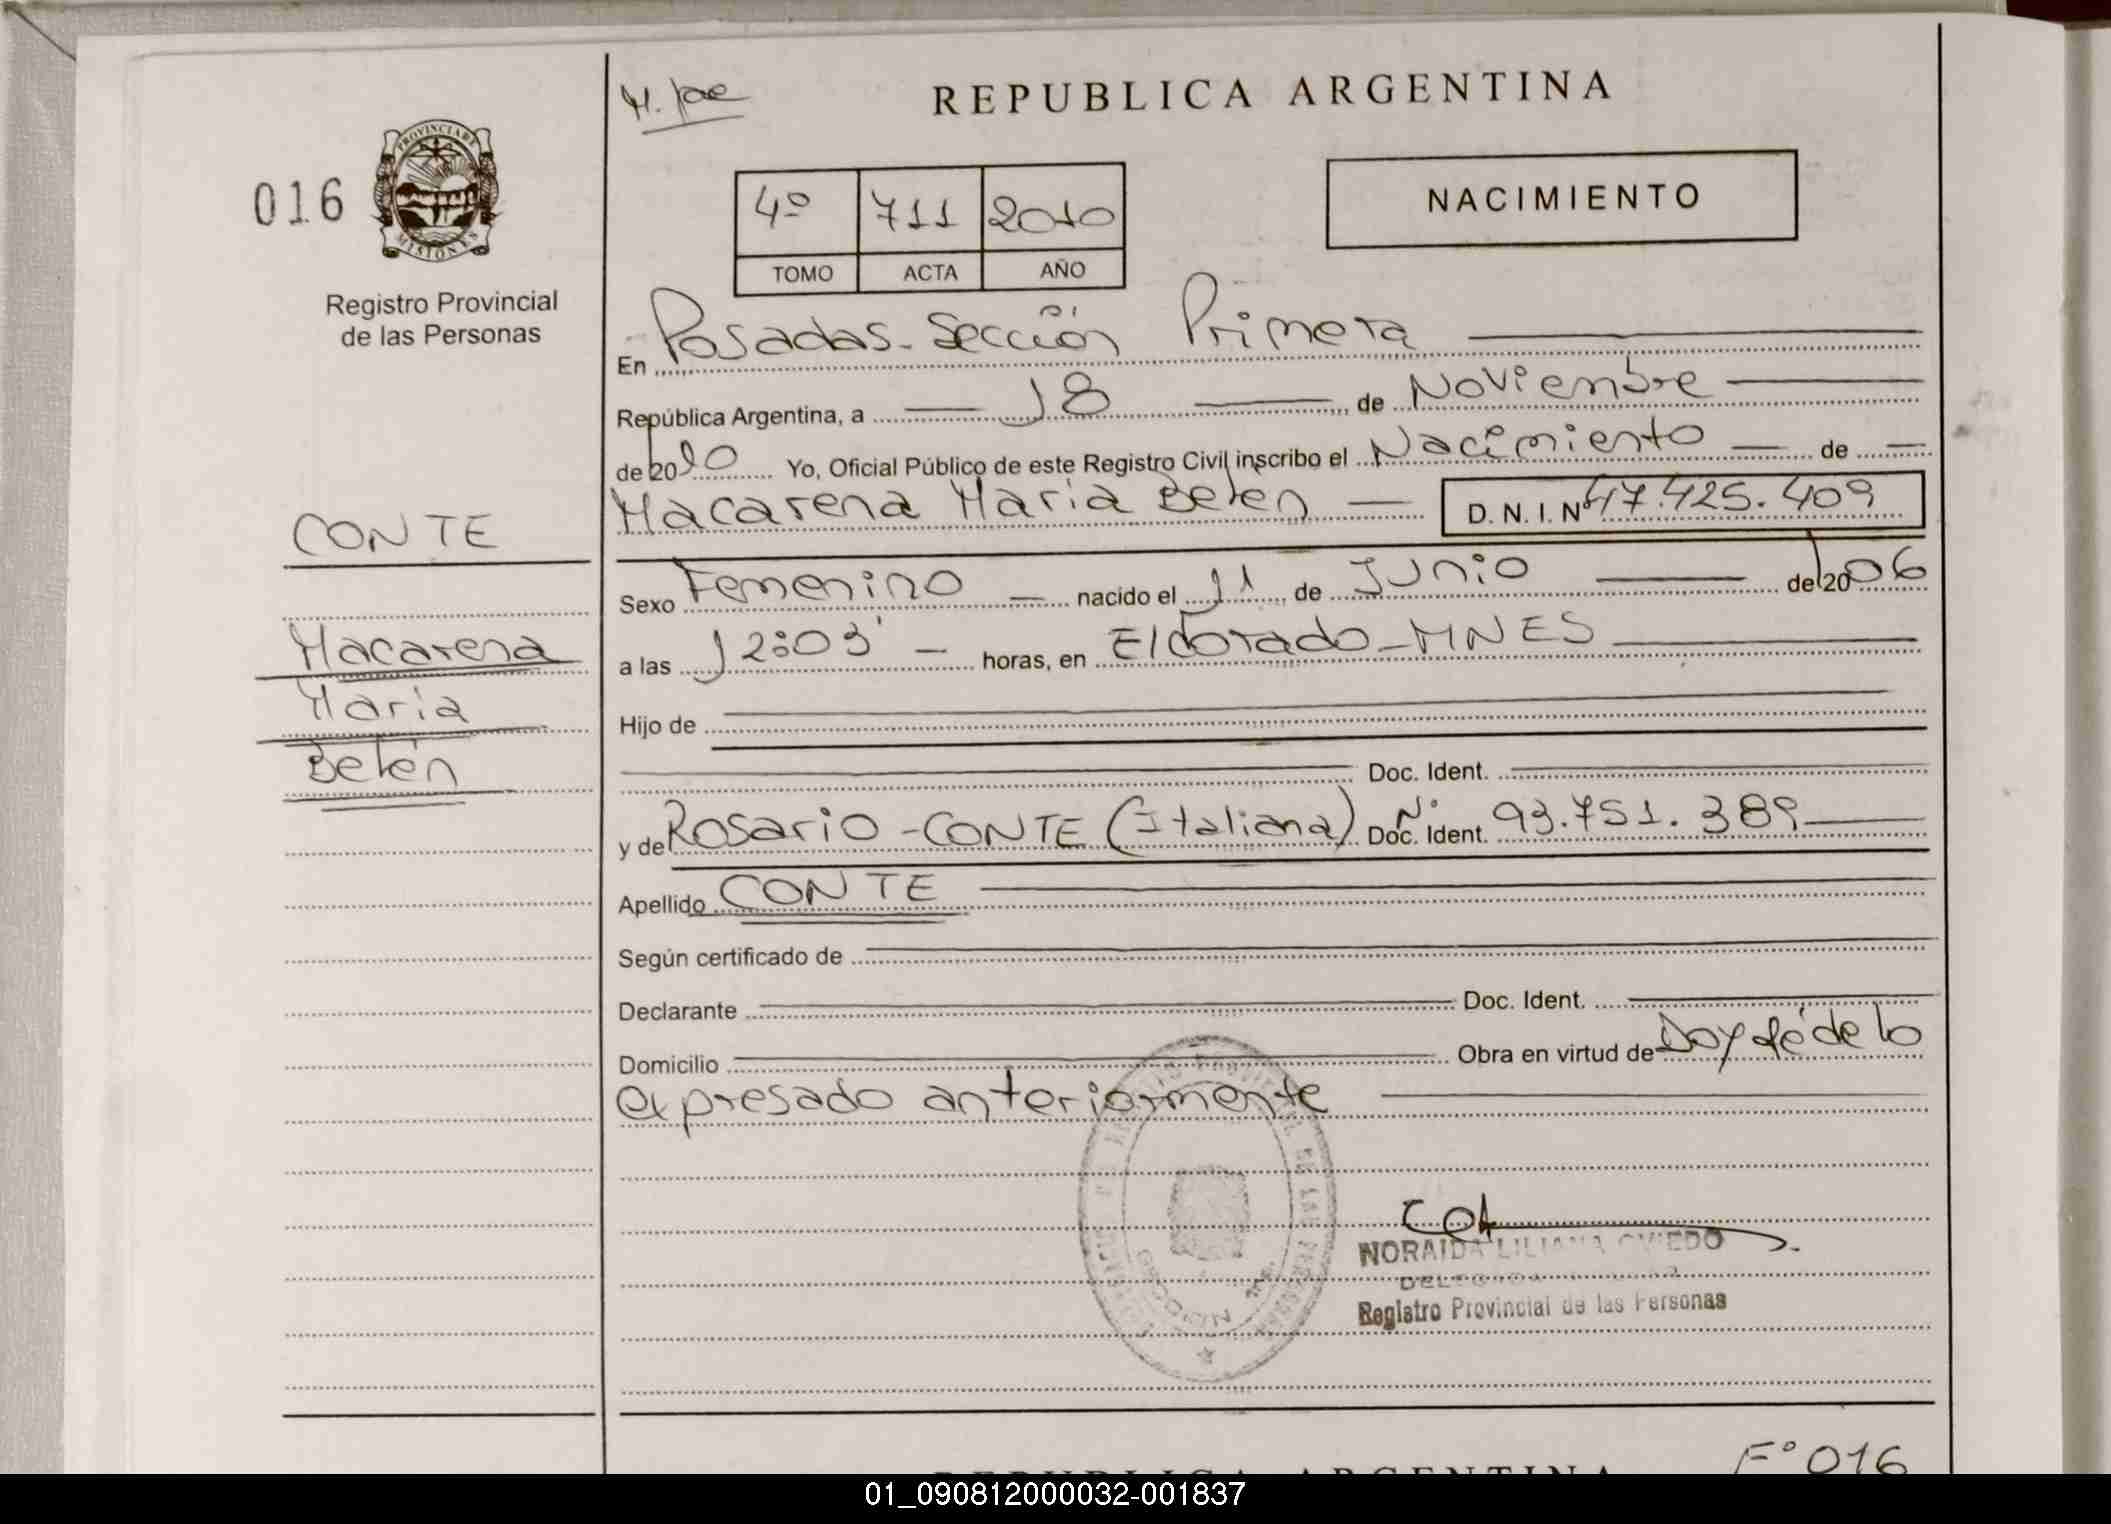 REPUBLICA ARGENTINA
016
PROVINCIA DE
MISIONES
4º 711 2010
TOMO ACTA AÑO
NACIMIENTO
Registro Provincial
de las Personas
En Posadas - Sección Primera
República Argentina, a 18 de Noviembre
de 2010 Yo, Oficial Público de este Registro Civil inscribo el Nacimiento de
Macarena María Belén D. N. I. Nº 47.425.409
CONTE
Sexo Femenino nacido el 11 de Junio de 2006
Macarena
a las 12:03' horas, en Eldorado - MNES
María
Hijo de
Belén
Doc. Ident.
y de Rosario - CONTE (Italiana) Doc. Ident. Nº 93.751.389
Apellido CONTE
Según certificado de
Declarante Doc. Ident.
Domicilio Obra en virtud de Doy fé de lo
expresado anteriormente
NORAIDA LILIANA OVIEDO
Registro Provincial de las Personas
REPUBLICA ARGENTINA
Fº 016
01_090812000032-001837